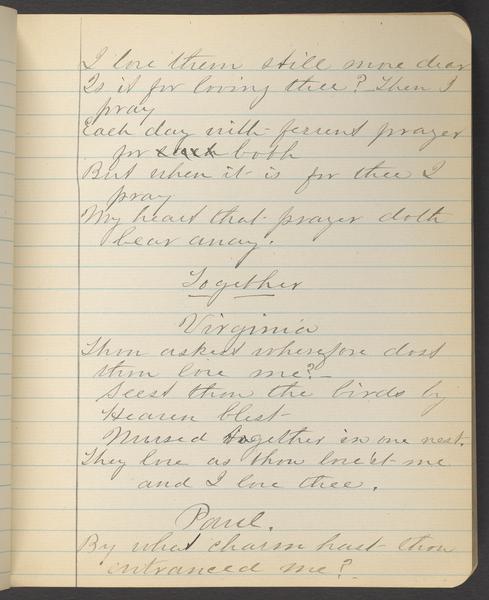 I love them still more dear
Is it for loving thee? Then I
pray
Each day with fervent prayer
for both
But when it is for thee I
pray
My heart that prayer doth
bear away.
Together
Virginia
Thou askest wherefore dost
thou love me?
Seest thou the birds by
Heaven blest
Nursed together in one nest.
They love as thou love'st me
and I love thee.
Paul.
By what charm hast thou
entranced me?